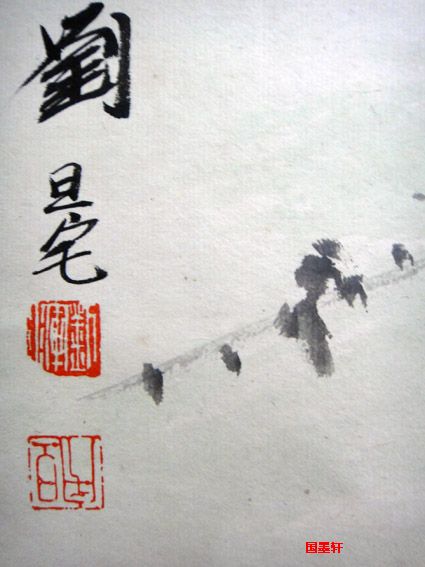 劉旦宅
国墨轩